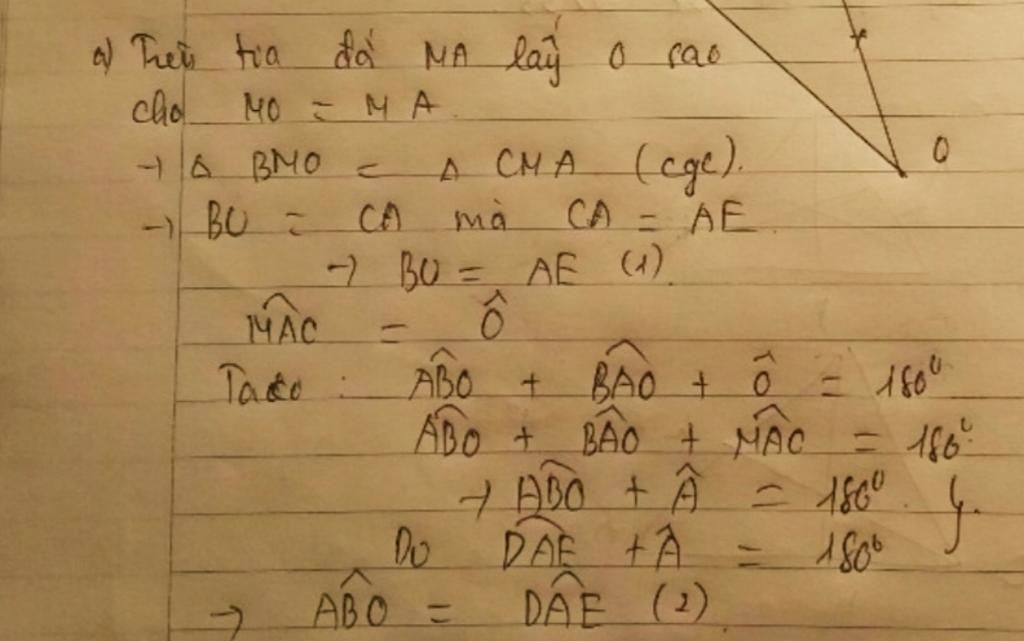 a) Trên tia đối MA lấy O sao
cho MO = MA
→ Δ BMO = Δ CMA (cgc).
→ BO = CA mà CA = AE
→ BO = AE (1).
\widehat{MAC} = \hat{O}
Ta có : \widehat{ABO} + \widehat{BAO} + \hat{O} = 180⁰
\widehat{ABO} + \widehat{BAO} + \widehat{MAC} = 180⁰
→ \widehat{ABO} + \hat{A} = 180⁰
Do \widehat{DAE} + \hat{A} = 180⁰
→ \widehat{ABO} = \widehat{DAE} (2)
O